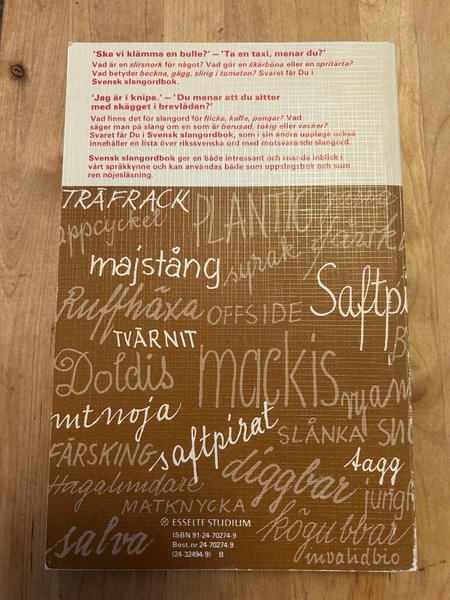 ‘Ska vi klämma en bulle?’ – ‘Ta en taxi, menar du?’
Vad är en slirsnork för något? Vad gör en skärböna eller en spritärta?
Vad betyder beckna, gägg, slirig i tomaten? Svaret får Du i
Svensk slangordbok.
‘Jag är i knipa.’ – ‘Du menar att du sitter
med skägget i brevlådan?’
Vad finns det för slangord för flicka, kaffe, pengar? Vad
säger man på slang om en som är berusad, tokig eller vacker?
Svaret får Du i Svensk slangordbok, som i sin andra upplaga också
innehåller en lista över rikssvenska ord med motsvarande slangord.
Svensk slangordbok ger en både intressant och roande inblick i
vårt språkkynne och kan användas både som uppslagsbok och som
ren nöjesläsning.
TRÄFRACK
appcyckel
PLANTIG
färsk
majstång
syrak
Saftpi
Ruffhäxa
OFFSIDE
TVÄRNIT
B
Doldis
mackis
nya
nutnoja
saftpirat
SLÅNKA
FÄRSKING
diggbar
tagg
Hagalundare
MATKNYCKA
jungfr
salva
kögubbar
invalidbio
ESSELTE STUDIUM
ISBN 91-24-70274-9
Best.nr 24-70274-9
(24-32494-9) B